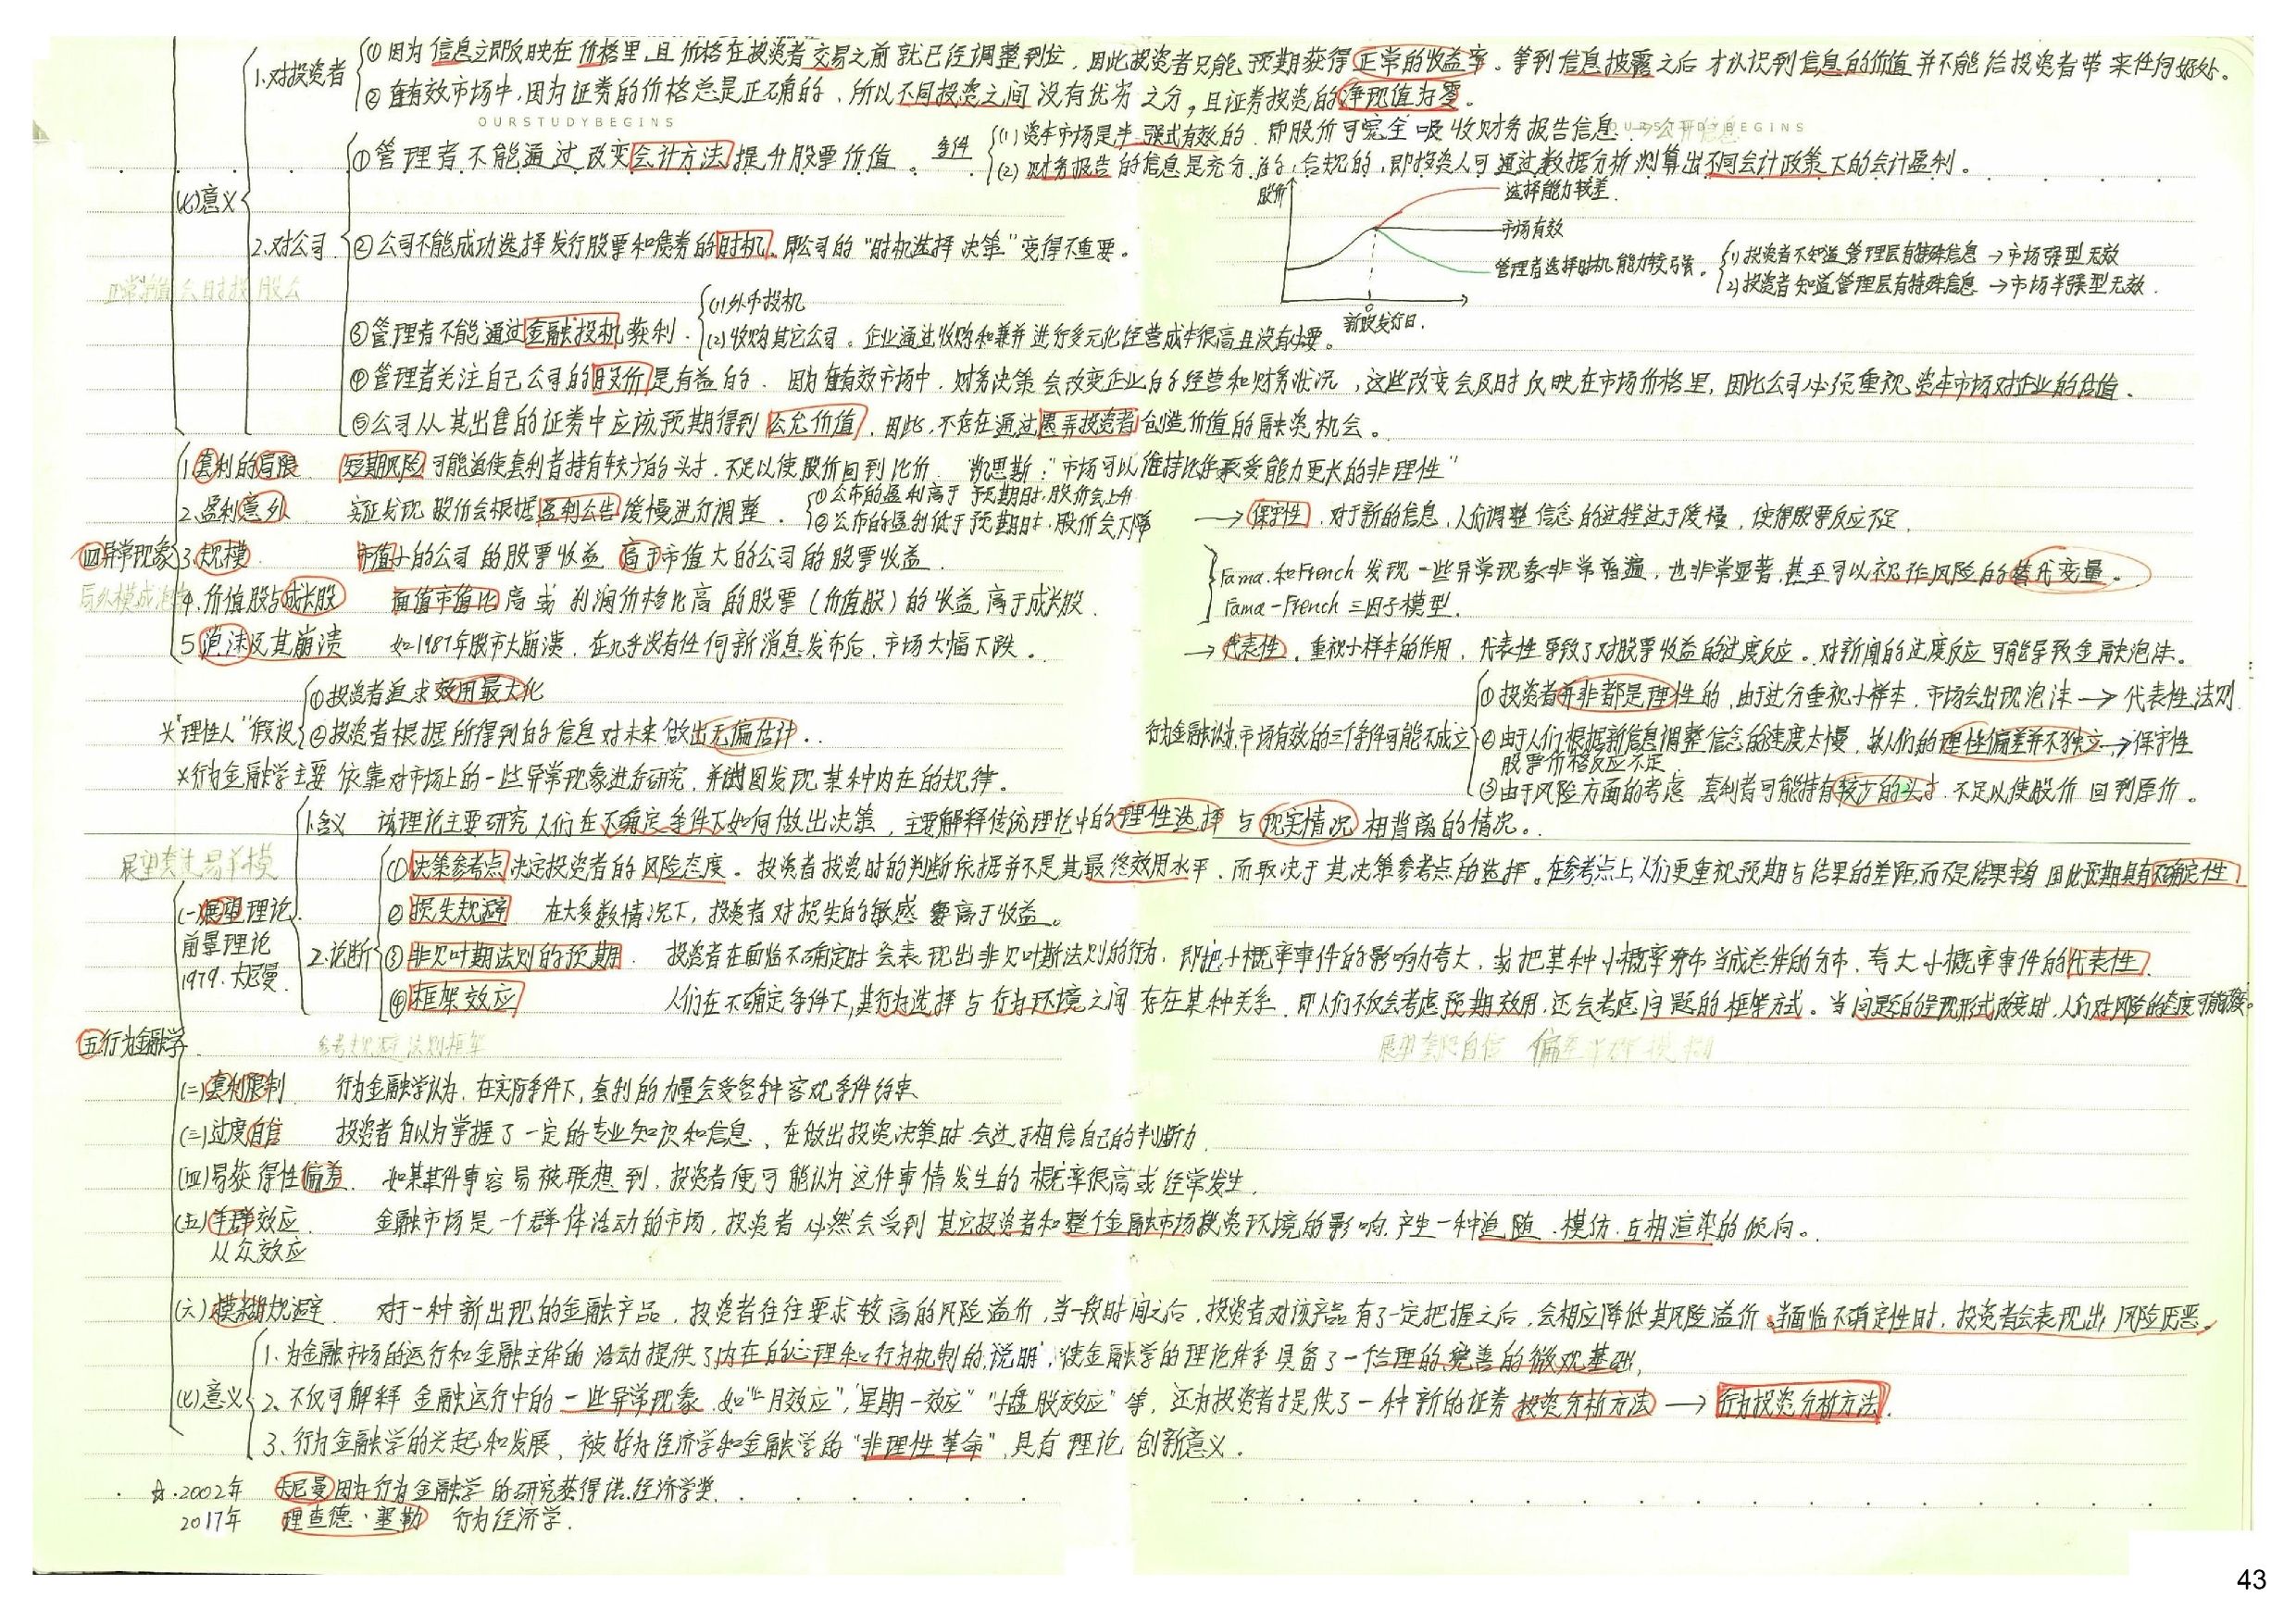 1.对投资者 ① 因为信息立即反映在价格里,且价格在投资者交易之前就已经调整到位,因此投资者只能预期获得正常的收益率。等到信息披露之后才认识到信息的价值并不能给投资者带来任何好处。
② 在有效市场中,因为证券的价格总是正确的,所以不同投资之间没有优劣之分,且证券投资的净现值为零。
OURSTUDYBEGINS
OURSTUDYBEGINS
①管理者不能通过改变会计方法提升股票价值。 条件 (1)资本市场是半强式有效的,即股价可完全吸收财务报告信息 →公开信息
(2)财务报告的信息是充分的,合规的,即投资人可通过数据分析测算出不同会计政策下的会计盈利。
(七)意义
股价
选择能力较差.
市场有效
管理者选择时机能力较强。 (1)投资者不知道管理层有特殊信息→市场强型无效
(2)投资者知道管理层有特殊信息→市场半强型无效.
新股发行日.
2.对公司 ②公司不能成功选择发行股票和债券的时机,即公司的“时机选择决策”变得不重要。
③管理者不能通过金融投机获利. (1)外币投机
(2)收购其它公司。企业通过收购和兼并进行多元化经营成本很高且没有必要。
④管理者关注自己公司的股价是有益的. 因为在有效市场中,财务决策会改变企业的经营和财务状况,这些改变会及时反映在市场价格里,因此公司必须重视资本市场对企业的估值.
⑤公司从其出售的证券中应该预期得到公允价值,因此,不存在通过愚弄投资者创造价值的融资机会。
四异常现象
1.套利的局限 短期风险可能迫使套利者持有较少的头寸,不足以使股价回到比价. 凯恩斯:“市场可以维持比你承受能力更长的非理性”
2.盈利意外 实证发现股价会根据盈利公告缓慢进行调整. ①公布的盈利高于预期时,股价会上升
②公布的盈利低于预期时,股价会下降
→保守性,对于新的信息,人们调整信念的过程过于缓慢,使得股票反应不足.
3.规模 市值小的公司的股票收益高于市值大的公司的股票收益.
4.价值股与成长股 面值市值比高或利润价格比高的股票(价值股)的收益高于成长股.
Fama.和French发现一些异常现象非常普遍,也非常显著,甚至可以视作风险的替代变量。
Fama-French三因子模型.
5.泡沫及其崩溃 如1987年股市大崩溃,在几乎没有任何新消息发布后,市场大幅下跌.
→代表性,重视小样本的作用,代表性导致了对股票收益的过度反应。对新闻的过度反应可能导致金融泡沫.
*“理性人”假设 ①投资者追求效用最大化
②投资者根据所得到的信息对未来做出无偏估计.
*行为金融学主要依靠对市场上的一些异常现象进行研究,并试图发现某种内在的规律。
行为金融认为,市场有效的三个条件可能不成立 ①投资者并非都是理性的,由于过分重视小样本,市场会出现泡沫→代表性法则
②由于人们根据新信息调整信念的速度太慢,故人们的理性偏差并不独立→保守性
股票价格反应不足
③由于风险方面的考虑 套利者可能持有较少的头寸,不足以使股价回到原价.
五行为金融学
(一)展望理论
前景理论
1979.卡尼曼.
1.含义 该理论主要研究人们在不确定条件下如何做出决策,主要解释传统理论中的理性选择与现实情况相背离的情况。
2.论断 ①决策参考点决定投资者的风险态度。投资者投资时的判断依据并不是其最终效用水平,而取决于其决策参考点的选择。在参考点上,人们更重视预期与结果的差距,而不是结果本身 因此预期具有不确定性
②损失规避 在大多数情况下,投资者对损失的敏感要高于收益。
③非贝叶斯法则的预期. 投资者在面临不确定时会表现出非贝叶斯法则的行为,即把小概率事件的影响力夸大,或把某种小概率分布当成总体的分布,夸大小概率事件的代表性.
④框架效应 人们在不确定条件下,其行为选择与行为环境之间存在某种关系,即人们不仅会考虑预期效用,还会考虑问题的框架方式。当问题的呈现形式改变时,人们对风险的态度可能改变。
(二)套利限制 行为金融学认为,在实际条件下,套利的力量会受各种客观条件约束
(三)过度自信 投资者自以为掌握了一定的专业知识和信息,在做出投资决策时会过于相信自己的判断力.
(四)易获得性偏差. 如果某件事容易被联想到,投资者便可能认为这件事情发生的概率很高或经常发生.
(五)羊群效应. 金融市场是一个群体活动的市场,投资者必然会受到其它投资者和整个金融市场投资环境的影响,产生一种追随、模仿、互相渲染的倾向。
从众效应
(六)模糊规避 对于一种新出现的金融产品,投资者往往要求较高的风险溢价,当一段时间之后,投资者对该产品有了一定把握之后,会相应降低其风险溢价.当面临不确定性时,投资者会表现出风险厌恶。
(七)意义 1.为金融市场的运行和金融主体的活动提供了内在的心理和行为机制的说明,使金融学的理论体系具备了一个合理的,完善的微观基础,
2.不仅可解释金融运行中的一些异常现象,如“一月效应”,“星期一效应”“小盘股效应”等,还为投资者提供了一种新的证券投资分析方法→行为投资分析方法.
3.行为金融学的兴起和发展,被称为经济学和金融学的“非理性革命”,具有理论创新意义.
☆.2002年 卡尼曼因为行为金融学的研究获得诺.经济学奖.
2017年 理查德·塞勒 行为经济学.
43